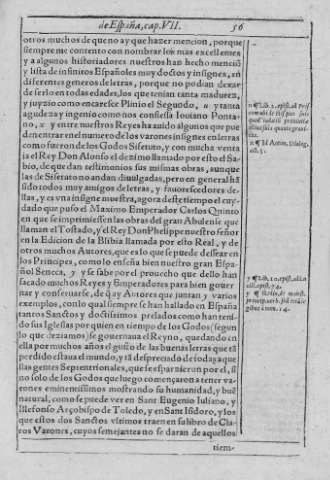 de España, cap. VII. 56
otros muchos de que no ay que hazer mencion, porque
siempre me contento con nombrar los mas excellentes
y a algunos historiadores nuestros han hecho mencio
y lista de infinitos Españoles muy doctos y insignes, en
diferentes generos de letras, porque no podian dexar
de serlo en todas edades, los que tenian tanta madurez,
y juyzio como encaresce Plinio el Segundo, u y tanta
agudeza y ingenio como nos confiessa Iouiano Ponta-
no, x y entre nuestros Reyes ha auido algunos que pue
den entrar en el numero de los varones insignes en letras
como fueron de los Godos Sisebuto, y con mucha venta
ja el Rey Don Alonso el dezimo llamado por esto el Sa-
bio, de que dan testimonios sus mismas obras, aunque
las de Sisebuto no andan diuulgadas, pero en general hã
sido todos muy amigos de letras, y fauorescedores de-
llas, y es vna insigne muestra, agora deste tiempo el cuy-
dado que puso el Maximo Emperador Carlos Quinto
en que se imprimiessen las obras del gran Abulense que
llaman el Tostado, y el Rey Don Phelippe nuestro señor
en la Edicion de la Blibia llamada por esto Real, y de
otros muchos Autores, que es lo que se puede dessear en
los Principes, como lo enseña bien nuestro gran Espa-
ñol Seneca, y y se sabe por el prouecho que dello han
sacado muchos Reyes y Emperadores para bien gouer
nar y conseruarse, de q̃ ay Autores que juntan z varios
exemplos, con lo qual siempre se han hallado en España
tantos Sanctos y doctissimos prelados como han teni-
do sus Iglesias por quien en tiempo de los Godos (segun
lo que deziamos) se gouernaua el Reyno, quedando en
ella por muchos años el gusto de las buenas letras que ta
perdido estaua el mundo, y tã despreciado de todas aque
llas gentes Septentrionales, que se esparzieron por el, si
no solo de los Godos que luego començaron a tener va-
rones eminentissimos mostrando su humanidad, y buẽ
natural, como se puede ver en Sant Eugenio Iuliano, y
Illefonso Arçobispo de Toledo, y en Sant Isidoro, y los
que estos dos Sanctos vltimos traen en su libro de Cla-
ros Varones, cuyos semejantes no se daran de aquellos
tiem-